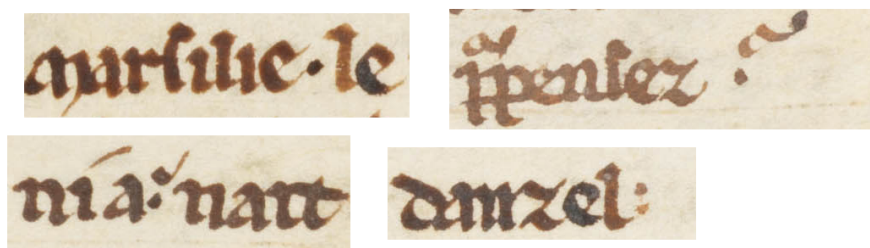 Marsilie · le
ppensez ?
ni a
danzel :